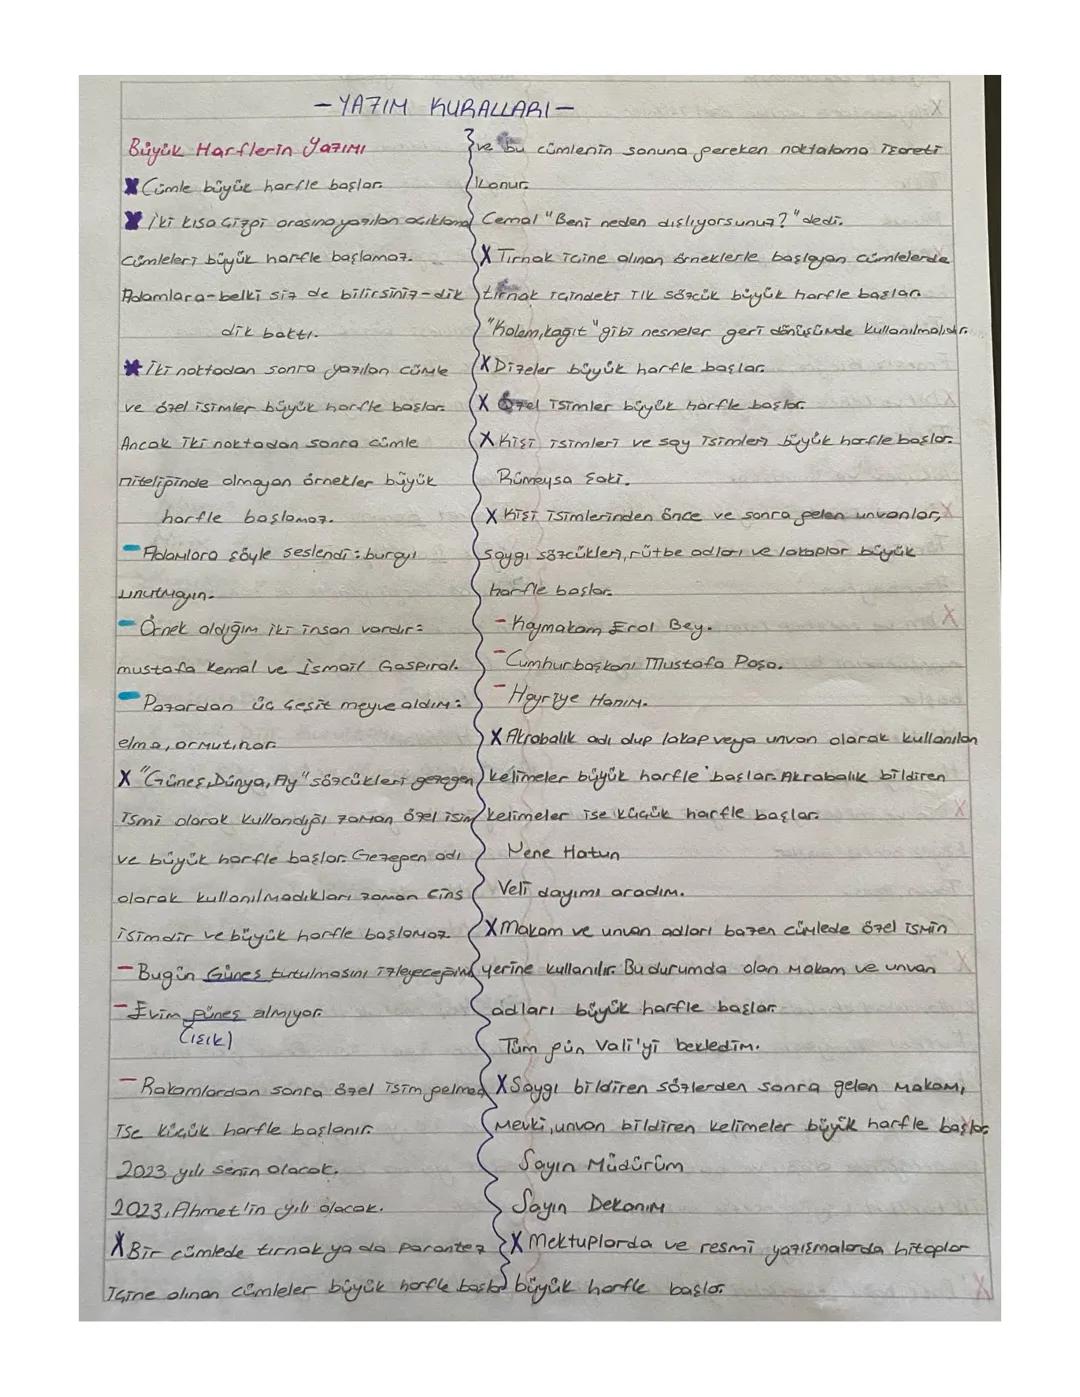 - YAZIM KURALLARI -
Büyük Harflerin Yazımı
X Cümle büyük harfle başlar.
X İki kısa çizgi arasına yazılan açıklama
cümleleri büyük harfle başlamaz.
Adamlara-belki siz de bilirsiniz-dik
dik baktı.
X İki noktadan sonra yazılan cümle
ve özel isimler büyük harfle başlar.
Ancak iki noktadan sonra cümle
niteliğinde olmayan örnekler büyük
harfle başlamaz.
- Adamlara şöyle seslendi: burayı
unutmayın.
- Örnek aldığım iki insan vardır:
mustafa Kemal ve İsmail Gaspıralı.
- Pazardan üç çeşit meyve aldım:
elma, armut, nar.
X "Güneş, Dünya, Ay" sözcükleri gezegen
ismi olarak kullandığı zaman özel isim
ve büyük harfle başlar. Gezegen adı
olarak kullanılmadıkları zaman cins
isimdir ve büyük harfle başlamaz
- Bugün Güneş tutulmasını izleyeceğim
- Evim güneş almıyor.
(ışık)
- Rakamlardan sonra özel isim gelmez
ise küçük harfle başlanır.
2023 yılı senin olacak.
2023, Ahmet'in yılı olacak.
X Bir cümlede tırnak ya da parantez
içine alınan cümleler büyük harfle başlar
ve bu cümlenin sonuna gereken noktalama işareti
konur.
Cemal "Beni neden dışlıyorsunuz?" dedi.
X Tırnak içine alınan örneklerle başlayan cümlelerde
tırnak içindeki ilk sözcük büyük harfle başlar.
"Kalem, kağıt" gibi nesneler geri dönüşümde kullanılmalıdır.
X Dizeler büyük harfle başlar.
X Özel isimler büyük harfle başlar.
X Kişi isimleri ve soy isimleri büyük harfle başlar.
Rümeysa Eaki.
X Kişi isimlerinden önce ve sonra gelen unvanlar,
saygı sözcükleri, rütbe adları ve lakaplar büyük
harfle başlar.
- Kaymakam Erol Bey.
- Cumhurbaşkanı Mustafa Paşa.
- Hayriye Hanım.
X Akrabalık adı olup lakap veya unvan olarak kullanılan
kelimeler büyük harfle başlar. Akrabalık bildiren
kelimeler ise küçük harfle başlar.
Nene Hatun
Veli dayımı aradım.
X Makam ve unvan adları bazen cümlede özel ismin
yerine kullanılır. Bu durumda olan makam ve unvan
adları büyük harfle başlar.
Tüm gün Vali'yi bekledim.
X Saygı bildiren sözlerden sonra gelen makam,
mevki, unvan bildiren kelimeler büyük harfle başlar.
Sayın Müdürüm
Sayın Dekanım
X Mektuplarda ve resmi yazışmalarda hitaplar
büyük harfle başlar.